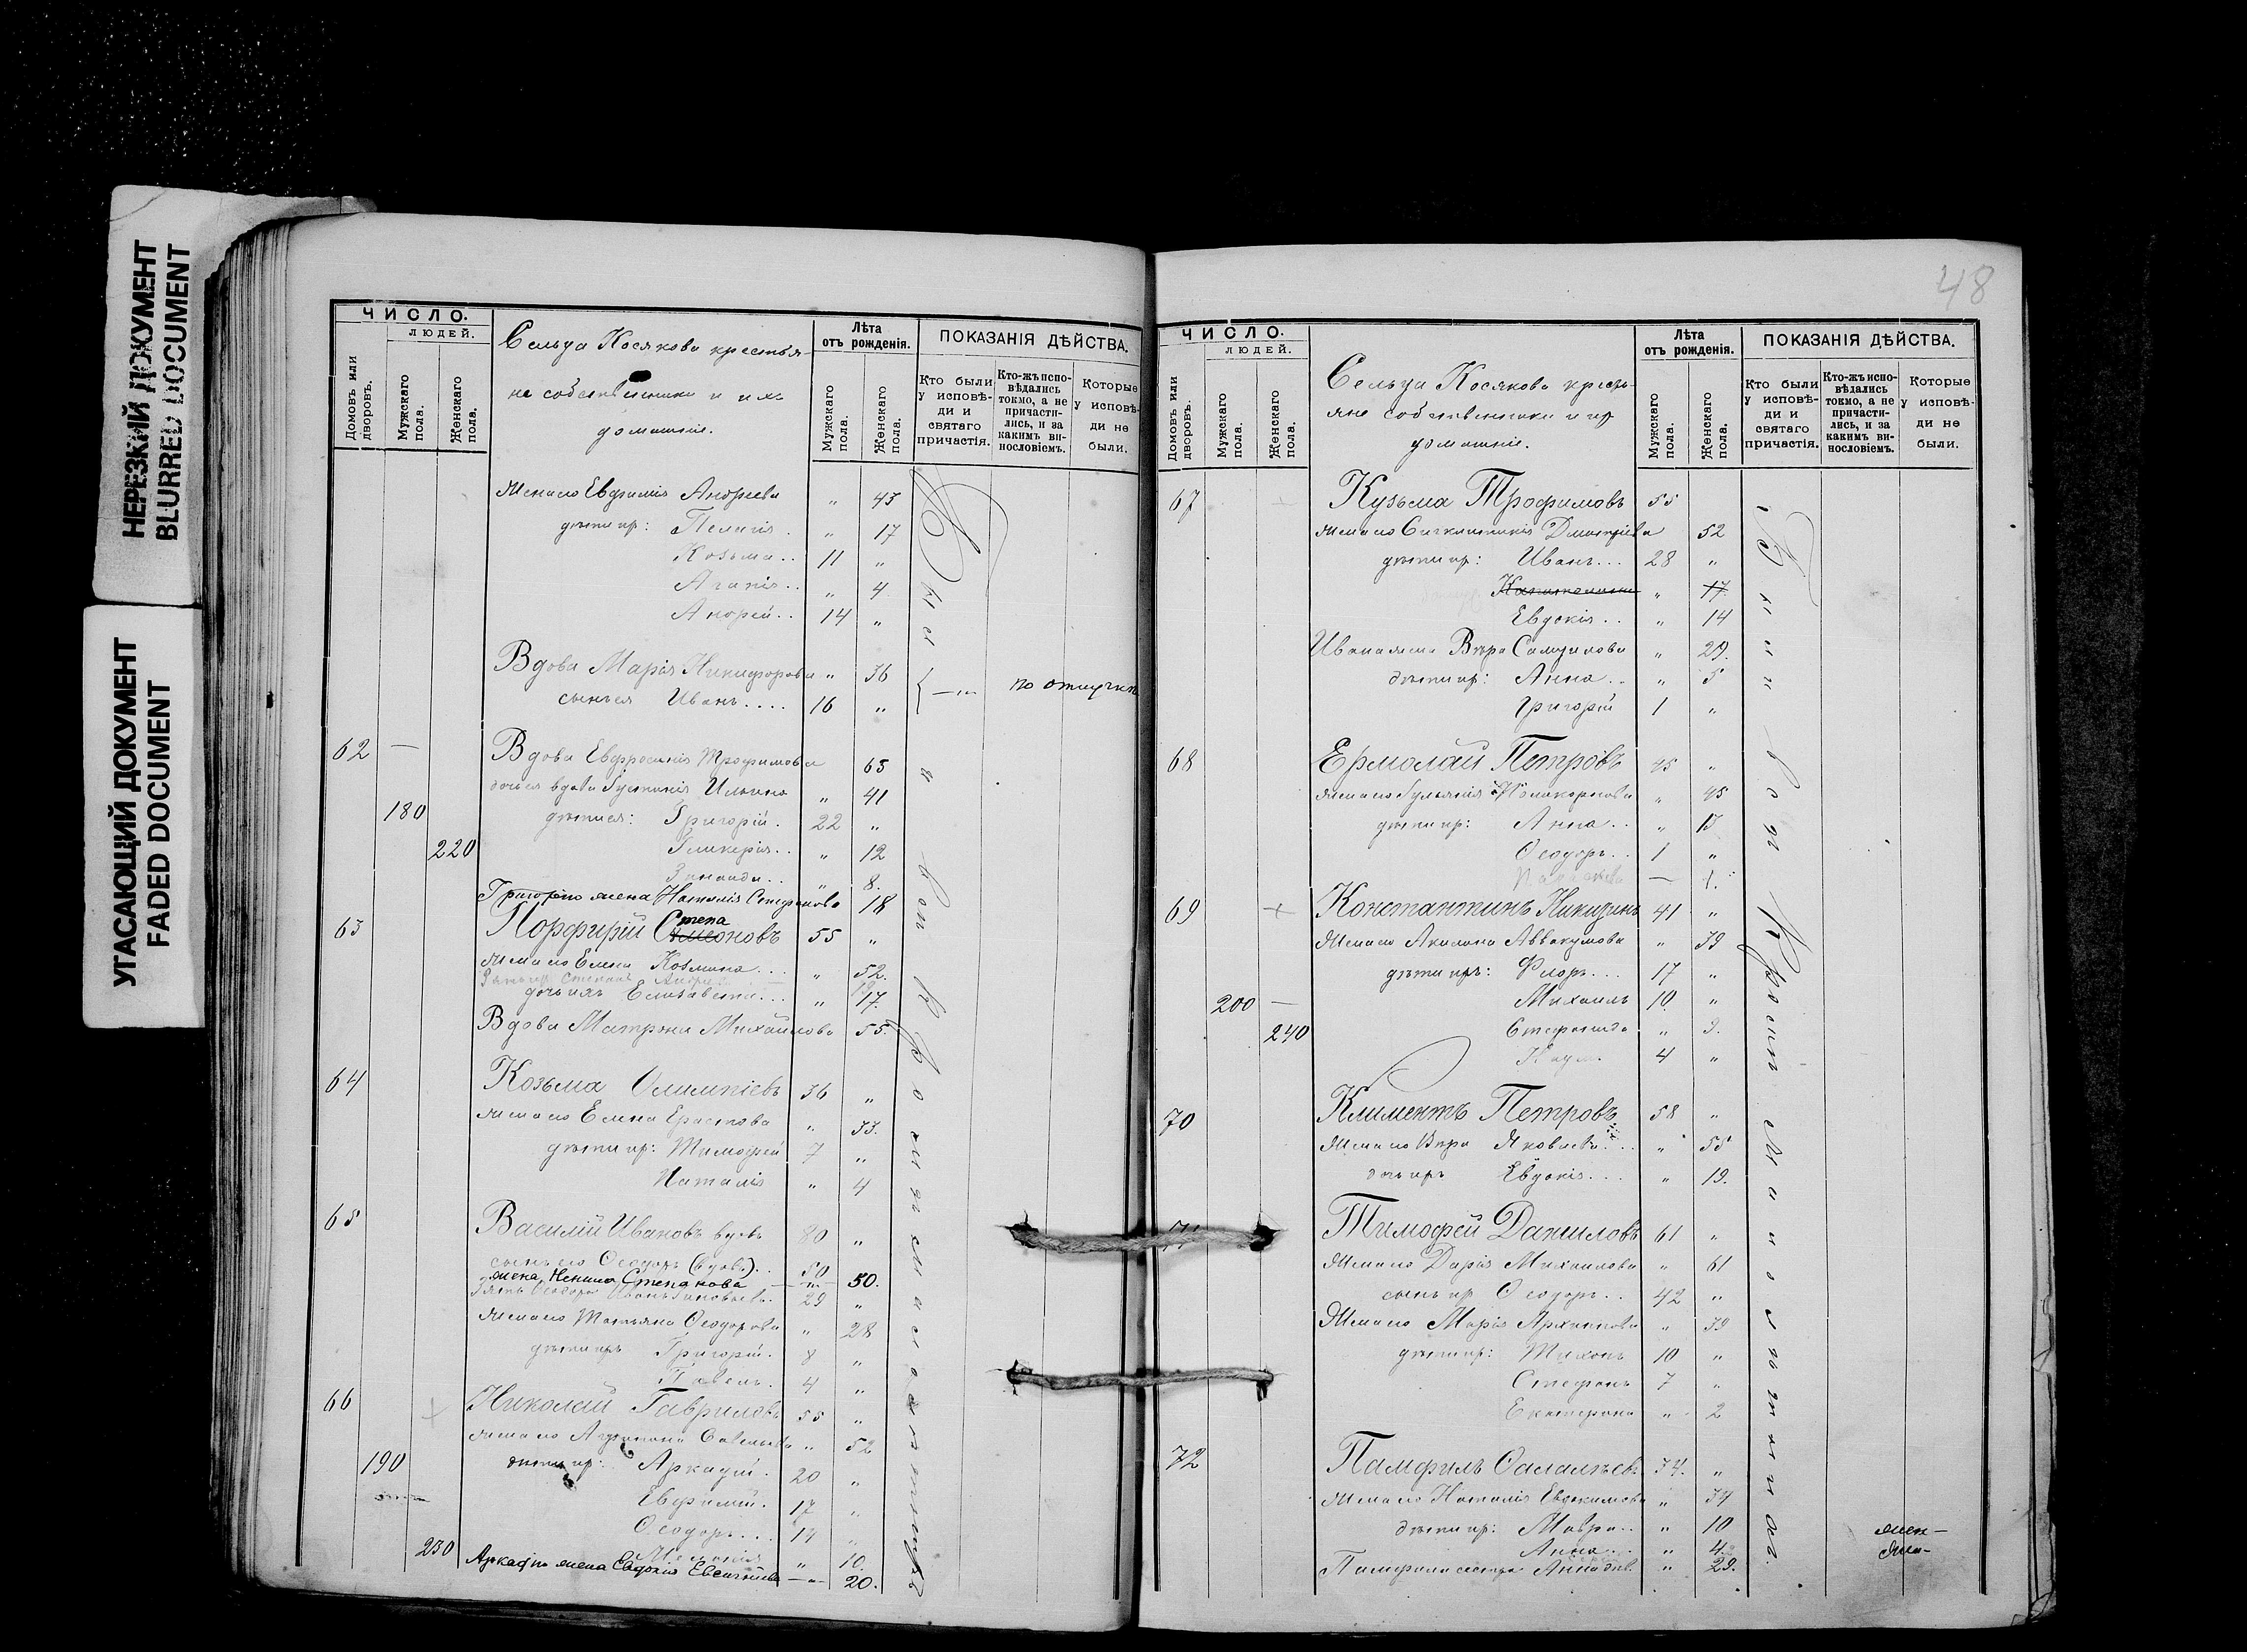 НЕРЕЗКИЙ ДОКУМЕНТ
BLURRED DOCUMENT
УГАСАЮЩИЙ ДОКУМЕНТ
FADED DOCUMENT
ЧИСЛО.
ЛЮДЕЙ.
Домовъ или дворовъ.
Мужскаго пола.
Женскаго пола.
Сельца Косякова крестья-
не собственники и ихъ
домашніе.
Лѣта
отъ рожденія.
Мужскаго пола.
Женскаго пола.
ПОКАЗАНІЯ ДѢЙСТВА.
Кто были у исповѣ-ди и святаго причастія.
Кто-жъ испо-вѣдались токмо, а не причасти-лись, и за какимъ ви-нословіемъ.
Которые у исповѣ-ди не были.
Жена его Евфимія Андреева " 43
дѣти ихъ: Пелагія . " 17
Козьма . . 11 "
Агапія . . " 4
Андрей . . 14 "
Вдова Марія Никифорова " 36
сынъ ея Иванъ . . . . 16 "
по отлучкѣ
62 Вдова Евфросинія Трофимова 65
дочь ея вдова Іустинія Ильина " 41
180 дѣти ея: Григорій . 22 "
220 Гликерія . . " 12
Зинаида . . " 8.
Григорію жена Наталія Стефанова 18
63 Порфирій Степа
оновъ 55 "
жена его Елена Козмина . . . " 52.
дочь ихъ Елизавета . . . " 17.
Вдова Матрона Михаилова 55.
64 Козьма Олимпіевъ 36 "
жена его Елена Ерастова " 33.
дѣти ихъ: Тимофей 7 "
Наталія " 4
65 Василій Ивановъ вдовъ 80 "
сынъ его Ѳеодоръ (вдов.) . . 50
жена Ненила Степанова — " — 50.
зять Ѳеодора Иванъ 29 "
жена его Татьяна Ѳеодорова " 28
дѣти ихъ Григорій . 8 "
Павелъ . 4 "
66 Николай Гавриловъ 55 "
жена его Агрипина Савельева " 52
190 дѣти ихъ: Аркадій . 20 "
Евфимій . 17 "
Ѳеодоръ . . . 14 "
230 " 10.
Аркадію жена Евдокія — " — 20.
48
ЧИСЛО.
ЛЮДЕЙ.
Домовъ или дворовъ.
Мужскаго пола.
Женскаго пола.
Сельца Косякова кресть-
яне собственники и ихъ
домашніе.
Лѣта
отъ рожденія.
Мужскаго пола.
Женскаго пола.
ПОКАЗАНІЯ ДѢЙСТВА.
Кто были у исповѣ-ди и святаго причастія.
Кто-жъ испо-вѣдались токмо, а не причасти-лись, и за какимъ ви-нословіемъ.
Которые у исповѣ-ди не были.
67 Кузьма Трофимовъ 55
жена его Синклитикія Дмитріева 52
дѣти ихъ: Иванъ . . . 28 "
" 17
Евдокія . . " 14
Ивана жена Вѣра Самуилова " 29.
дѣти ихъ: Анна . . " 5
Григорій 1 "
68 Ермолай Петровъ 45 "
жена его Іульянія Поликарпова " 45
дѣти ихъ: Анна . . " 13
Ѳеодоръ . . 1 "
Параскева —
69 Константинъ Никитинъ 41 "
Жена его Акилина Аввакумова " 39
дѣти ихъ: Флоръ . . . 17 "
200 — Михаилъ 10. "
240 Стефанида " 9.
Наум. 4 "
70 Климентъ Петровъ 58 "
Жена его Вѣра Яковлева . . " 55
дочь ихъ Евдокія . . . " 19.
71 Тимофей Даниловъ 61 "
Жена его Дарія Михаилова " 61
сынъ ихъ Ѳеодоръ . . 42 "
Жена его Марія Архипова " 39
дѣти ихъ: Тихонъ 10 "
Стефанъ 7 "
Екатерина " 2
72 Памфилъ Салапѣевъ 34. "
Жена его Наталія Евдокимова " 34
дѣти ихъ: Мавра . . " 10
Анна . . " 4.
Памфила сестра Анна дѣв. " 29.